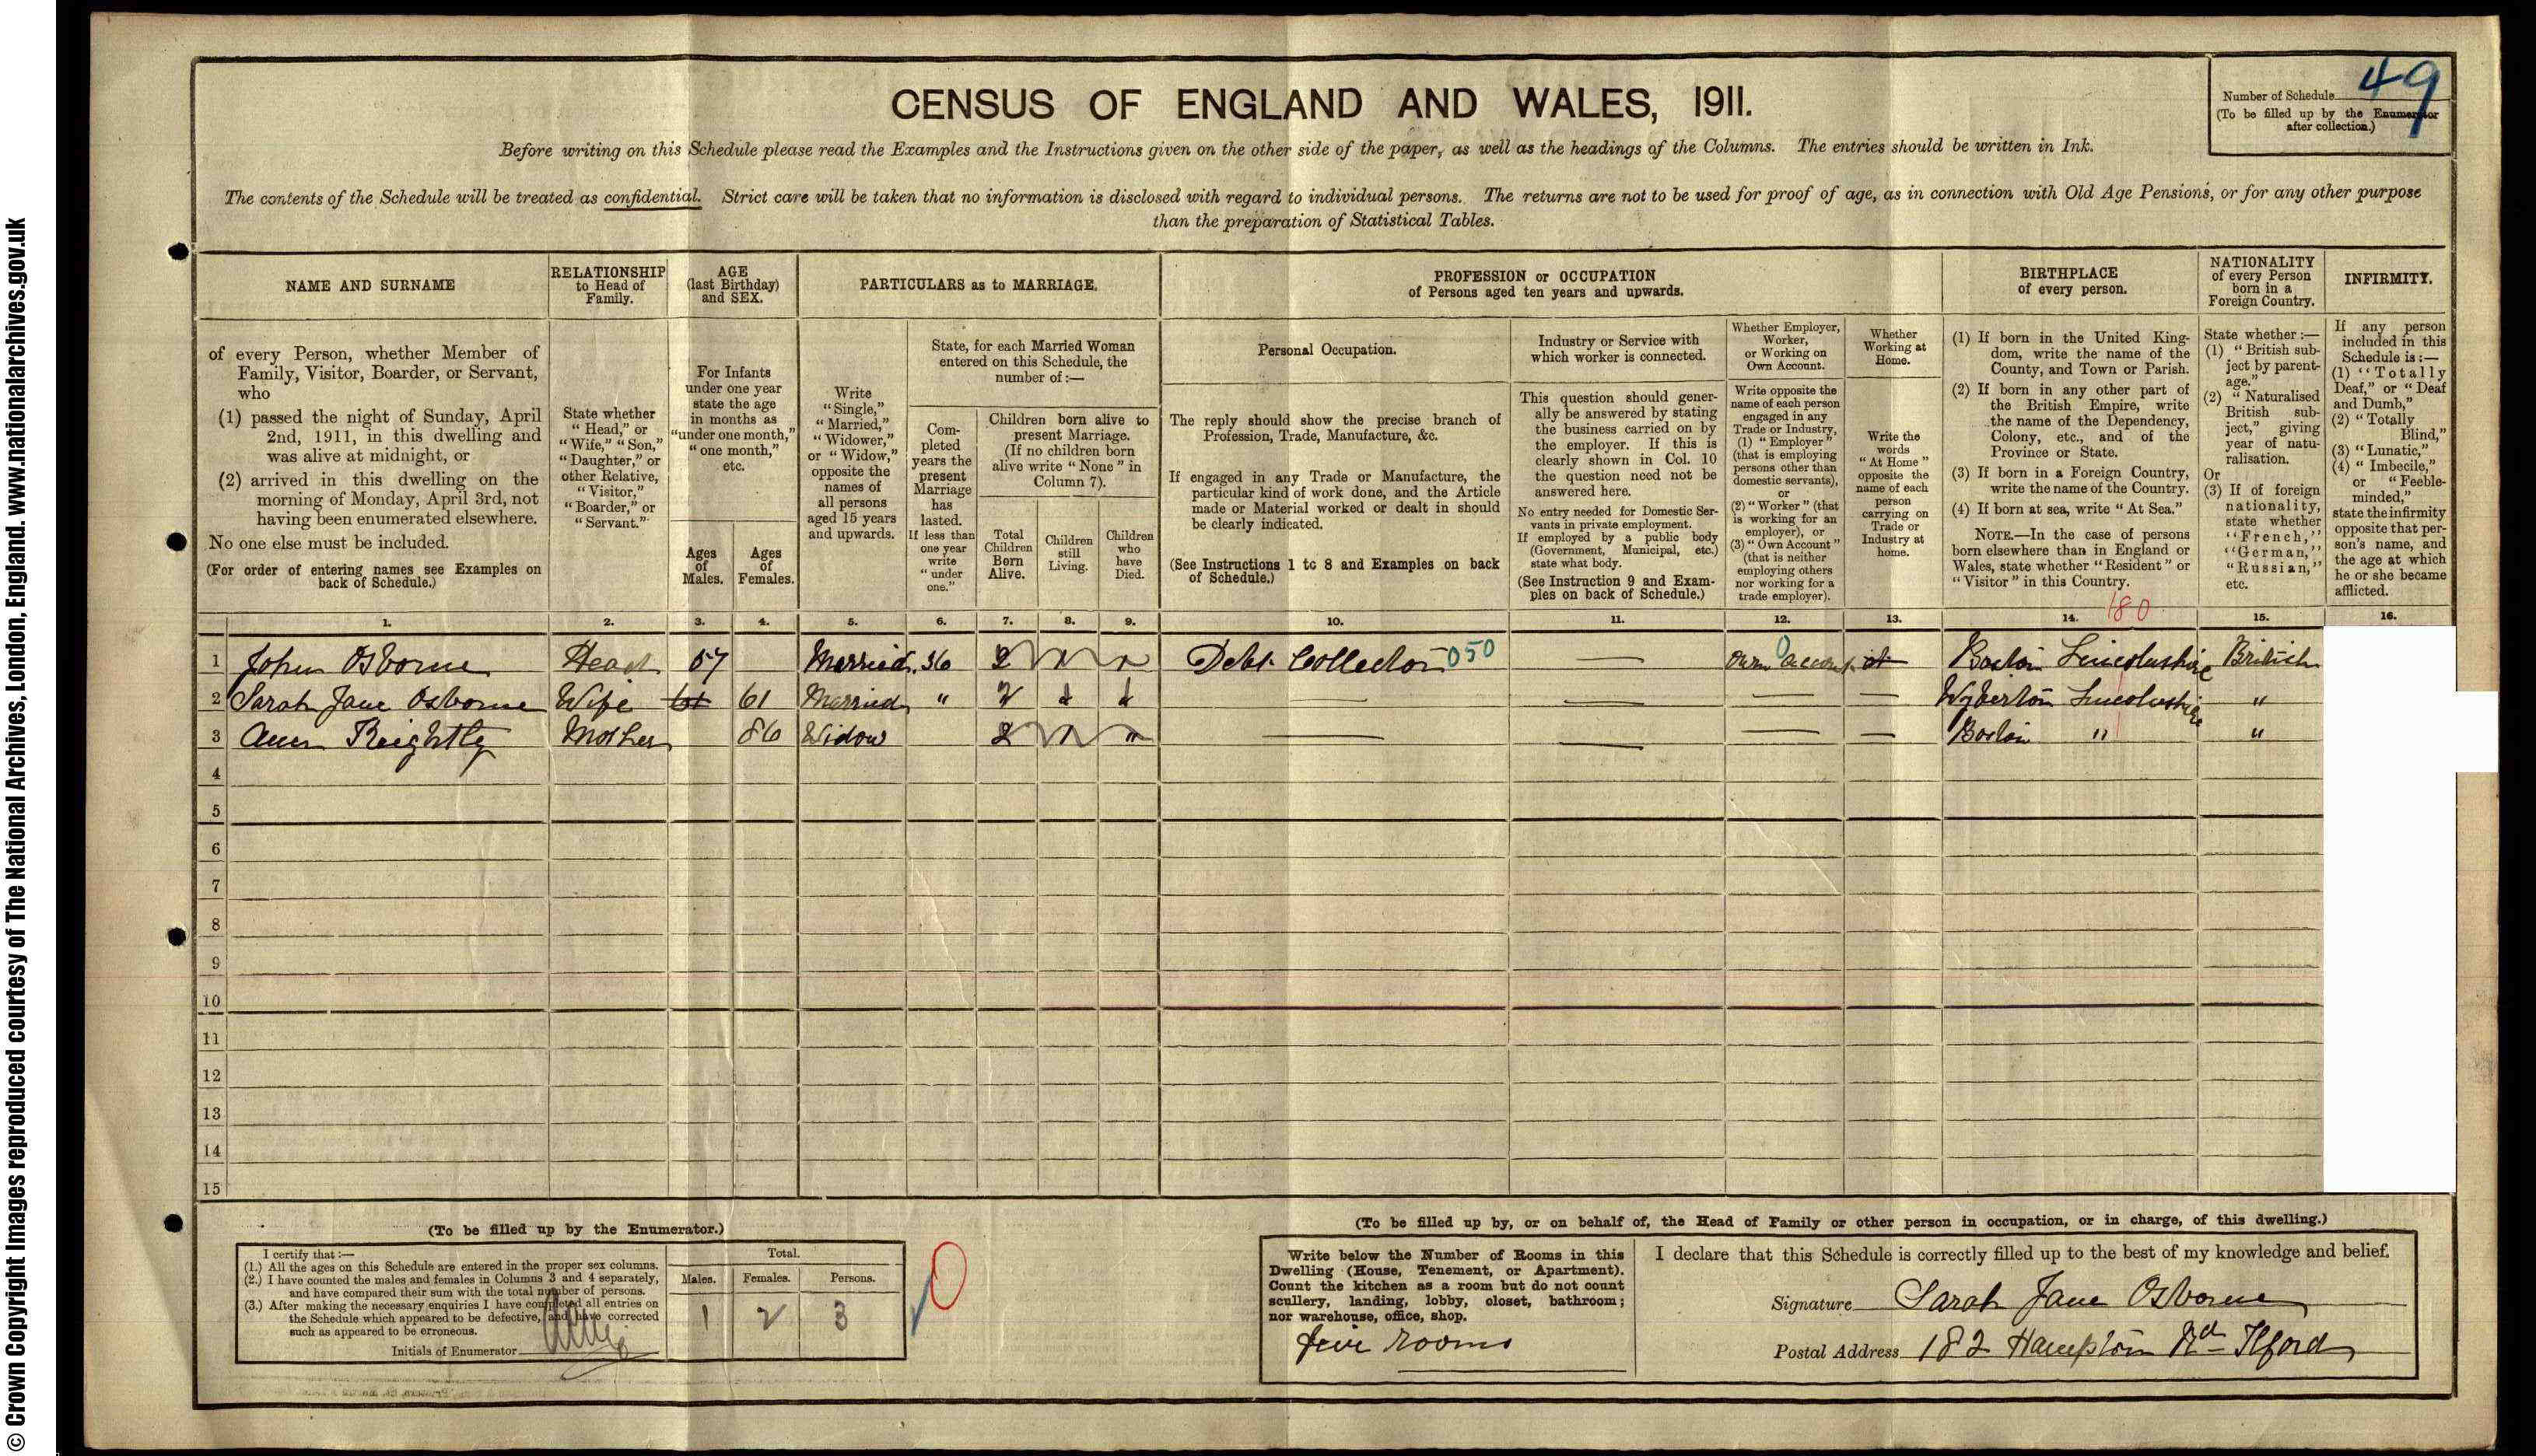 © Crown Copyright Images reproduced courtesy of The National Archives, London, England. www.nationalarchives.gov.uk
CENSUS OF ENGLAND AND WALES, 1911.
Number of Schedule 49
(To be filled up by the Enumerator
after collection.)
Before writing on this Schedule please read the Examples and the Instructions given on the other side of the paper, as well as the headings of the Columns. The entries should be written in Ink.
The contents of the Schedule will be treated as confidential. Strict care will be taken that no information is disclosed with regard to individual persons. The returns are not to be used for proof of age, as in connection with Old Age Pensions, or for any other purpose
than the preparation of Statistical Tables.
NAME AND SURNAME
of every Person, whether Member of
Family, Visitor, Boarder, or Servant,
who
(1) passed the night of Sunday, April
2nd, 1911, in this dwelling and
was alive at midnight, or
(2) arrived in this dwelling on the
morning of Monday, April 3rd, not
having been enumerated elsewhere.
No one else must be included.
(For order of entering names see Examples on
back of Schedule.)
RELATIONSHIP
to Head of
Family.
State whether
"Head," or
"Wife," "Son,"
"Daughter," or
other Relative,
"Visitor,"
"Boarder," or
"Servant."
AGE
(last Birthday)
and SEX.
For Infants
under one year
state the age
in months as
"under one month,"
"one month,"
etc.
Ages
of
Males.
Ages
of
Females.
PARTICULARS as to MARRIAGE.
Write
"Single,"
"Married,"
"Widower,"
or "Widow,"
opposite the
names of
all persons
aged 15 years
and upwards.
State, for each Married Woman
entered on this Schedule, the
number of:—
Com-
pleted
years the
present
Marriage
has
lasted.
If less than
one year
write
"under
one."
Children born alive to
present Marriage.
(If no children born
alive write "None" in
Column 7).
Total
Children
Born
Alive.
Children
still
Living.
Children
who
have
Died.
PROFESSION or OCCUPATION
of Persons aged ten years and upwards.
Personal Occupation.
The reply should show the precise branch of
Profession, Trade, Manufacture, &c.
If engaged in any Trade or Manufacture, the
particular kind of work done, and the Article
made or Material worked or dealt in should
be clearly indicated.
(See Instructions 1 to 8 and Examples on back
of Schedule.)
Industry or Service with
which worker is connected.
This question should gener-
ally be answered by stating
the business carried on by
the employer. If this is
clearly shown in Col. 10
the question need not be
answered here.
No entry needed for Domestic Ser-
vants in private employment.
If employed by a public body
(Government, Municipal, etc.)
state what body.
(See Instruction 9 and Exam-
ples on back of Schedule.)
Whether Employer,
Worker,
or Working on
Own Account.
Write opposite the
name of each person
engaged in any
Trade or Industry,
(1) "Employer"
(that is employing
persons other than
domestic servants),
or
(2) "Worker" (that
is working for an
employer), or
(3) "Own Account"
(that is neither
employing others
nor working for a
trade employer).
Whether
Working at
Home.
Write the
words
"At Home"
opposite the
name of each
person
carrying on
Trade or
Industry at
home.
BIRTHPLACE
of every person.
(1) If born in the United King-
dom, write the name of the
County, and Town or Parish.
(2) If born in any other part of
the British Empire, write
the name of the Dependency,
Colony, etc., and of the
Province or State.
(3) If born in a Foreign Country,
write the name of the Country.
(4) If born at sea, write "At Sea."
NOTE.—In the case of persons
born elsewhere than in England or
Wales, state whether "Resident" or
"Visitor" in this Country.
NATIONALITY
of every Person
born in a
Foreign Country.
State whether:—
(1) "British sub-
ject by parent-
age."
(2) "Naturalised
British sub-
ject," giving
year of natu-
ralisation.
Or
(3) If of foreign
nationality,
state whether
"French,"
"German,"
"Russian,"
etc.
INFIRMITY.
If any person
included in this
Schedule is:—
(1) "Totally
Deaf," or "Deaf
and Dumb,"
(2) "Totally
Blind,"
(3) "Lunatic,"
(4) "Imbecile,"
or "Feeble-
minded,"
state the infirmity
opposite that per-
son's name, and
the age at which
he or she became
afflicted.
180
1. 2. 3. 4. 5. 6. 7. 8. 9. 10. 11. 12. 13. 14. 15. 16.
1 John Osborne Head 57 Married 36 2 Debt Collector 050 — Own Account at Boston Lincolnshire British
2 Sarah Jane Osborne Wife 61 61 Married " 2 — — — — Wyberton Lincolnshire "
3 Ann Keightly Mother 86 Widow 2 — — — — Boston " "
4
5
6
7
8
9
10
11
12
13
14
15
(To be filled up by the Enumerator.)
I certify that:—
(1.) All the ages on this Schedule are entered in the proper sex columns.
(2.) I have counted the males and females in Columns 3 and 4 separately,
and have compared their sum with the total number of persons.
(3.) After making the necessary enquiries I have completed all entries on
the Schedule which appeared to be defective, and have corrected
such as appeared to be erroneous.
Initials of Enumerator
Total.
Males. Females. Persons.
1 2 3
0
(To be filled up by, or on behalf of, the Head of Family or other person in occupation, or in charge, of this dwelling.)
Write below the Number of Rooms in this
Dwelling (House, Tenement, or Apartment).
Count the kitchen as a room but do not count
scullery, landing, lobby, closet, bathroom;
nor warehouse, office, shop.
five rooms
I declare that this Schedule is correctly filled up to the best of my knowledge and belief.
Signature Sarah Jane Osborne
Postal Address 182 Hampton Rd Ilford